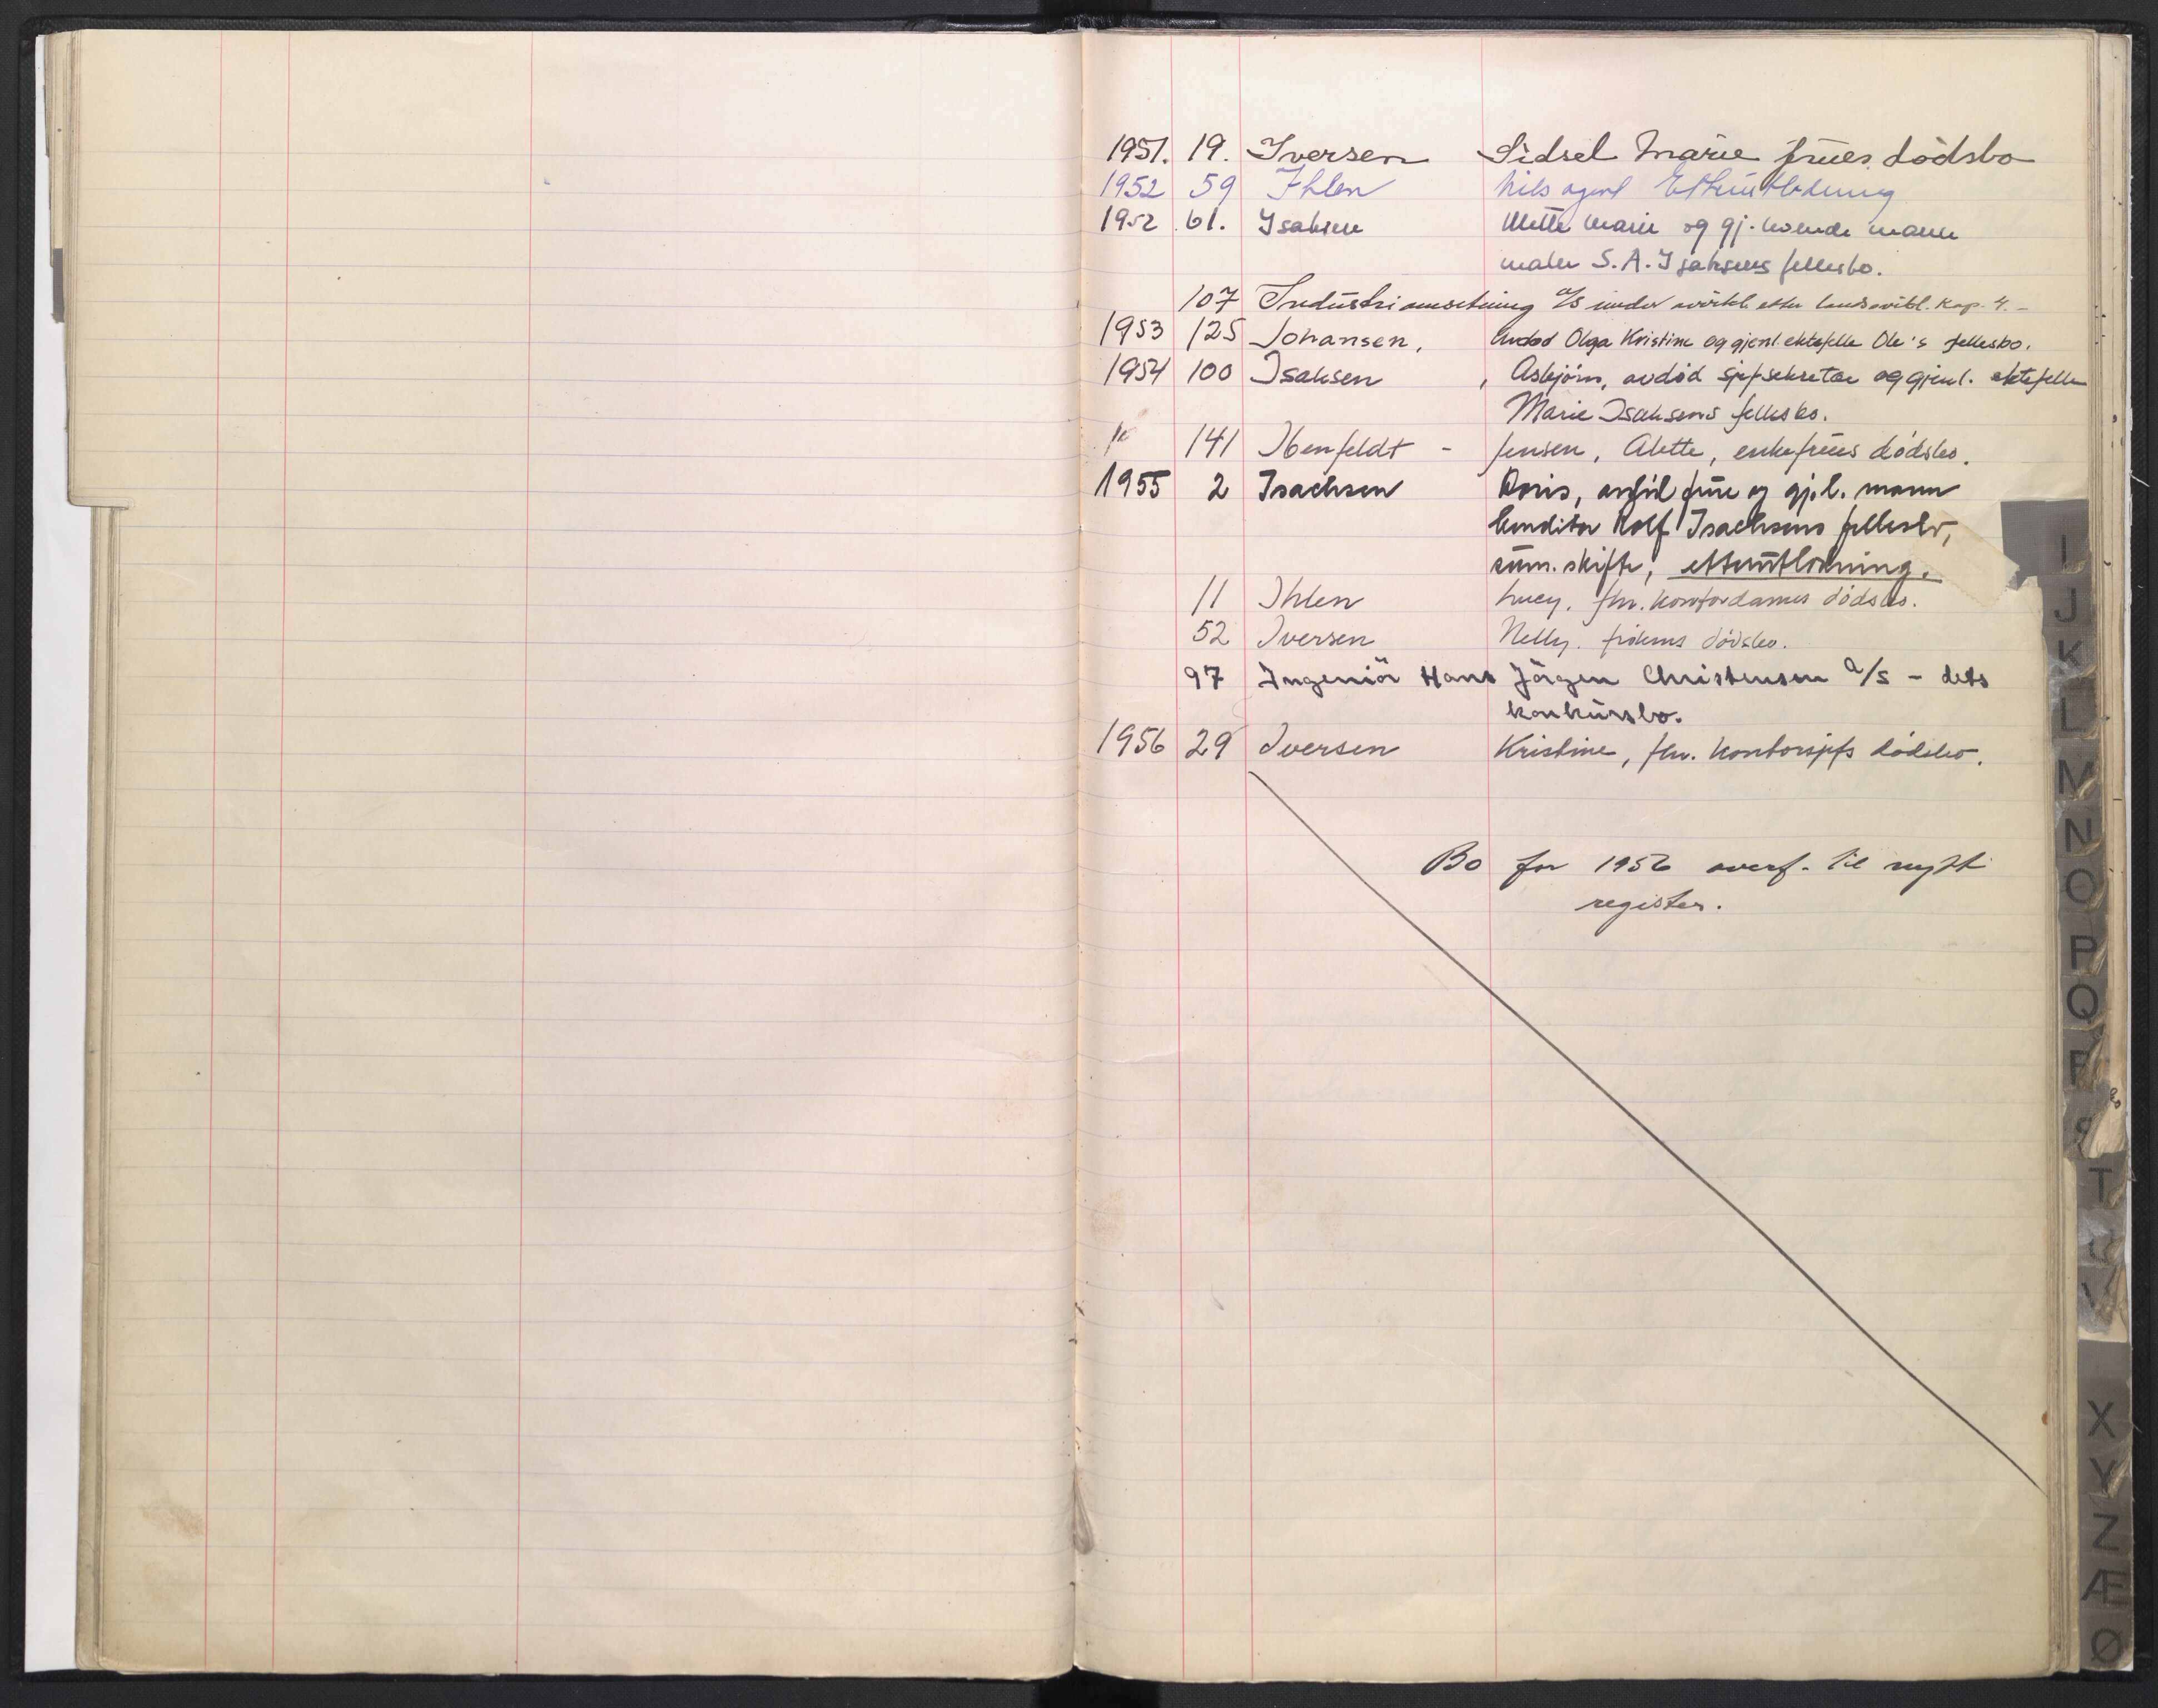 1951. 19. Iversen Sidsel Marie frues dödsbo
1952 59 Ihlen Nils agent Etterutlodning
1952 61. Isaksen Mette Marie og gj. levende mann
maler S. A. Isaksens fellesbo.
107 Industriomsetning A/S under avvikl. etter landsvikl. kap. 4. -
1953 125 Johansen, Avdød Olga Kristine og gjenl. ektefelle Ole's fellesbo.
1954 100 Isaksen , Asbjörn, avdöd sjefsekretær og gjenl. ektefelle
Marie Isaksens fellesbo.
141 Ibenfeldt - Jensen, Alette, enkefrues dödsbo.
1955 2 Isachsen Doris, avdöd frue og gj.l. mann
konditor Rolf Isachsens fellesbo,
sum. skifte, etterutlodning.
11 Ihlen Lucy. fhv. kontordames dödsbo.
52 Iversen Nelly. frökens dödsbo.
97 Ingeniör Hans Jörgen Christensen A/S - dets
konkursbo.
1956 29 Iversen Kristine, fhv. kontorsjefs dödsbo.
Bo for 1956 overf. til nytt
register.
I
J
K
L
M
N
O
P
Q
R
S
T
U
V
X
Y
Z
Æ
Ø